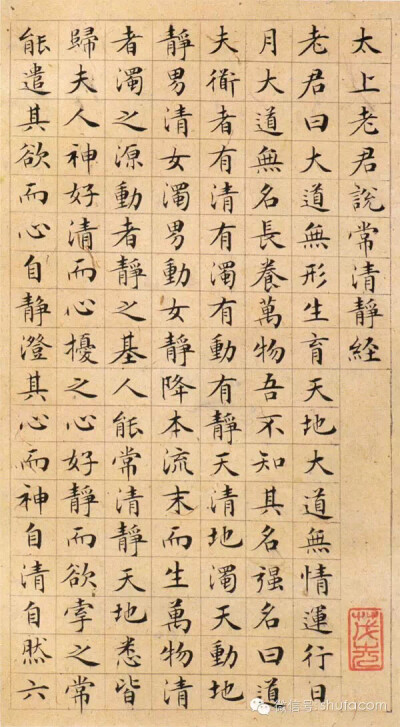 太上老君說常清靜経
老君曰大道無形生育天地大道無情運行日
月大道無名長養萬物吾不知其名强名曰道
夫衜者有清有濁有動有靜天清地濁天動地
靜男清女濁男動女靜降本流末而生萬物清
者濁之源動者靜之基人能常清靜天地悉皆
歸夫人神好清而心擾之心好靜而欲牽之常
能遣其欲而心自静澄其心而神自清自然六
微信号: shufacom